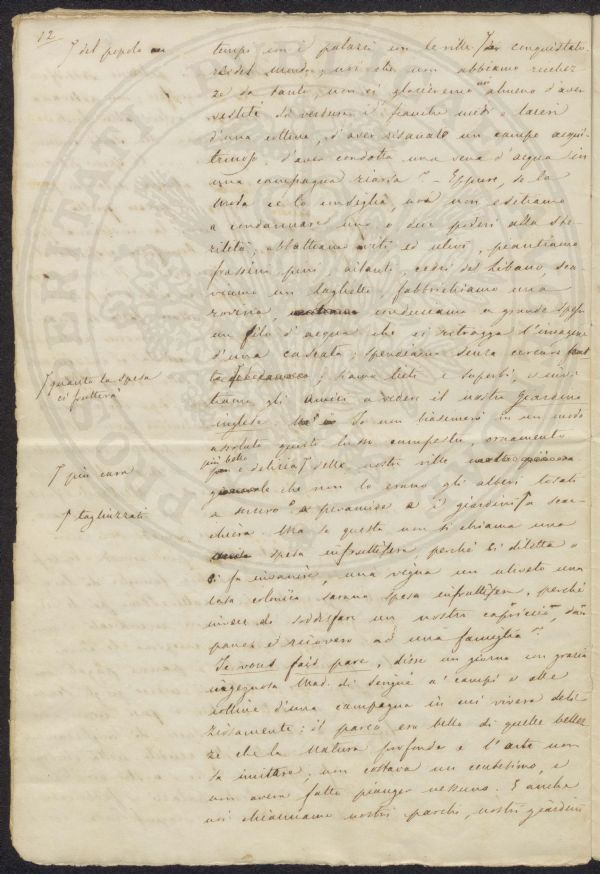 12
del popolo
tempi con i palazzi con le ville conquistato-
ri del mondo, noi che non abbiamo ricchez
ze da tanto, non ci glorieremo almeno d'aver
vestiti di verzura i fianchi nudi e
d'una collina, d'aver risanato un campo acqui-
trinoso, d'aver condotta una vena d'acqua in
una campagna riarsa? - Eppure, se la
moda ce lo consiglia, noi non esitiamo
a condannare uno o due poderi alla ste-
rilità; abbattiamo viti ed ulivi, piantiamo
frassini pini, ailanti, cedri del Libano, sca-
viamo un laghetto, fabbrichiamo una
conduciamo a grande spesa
un filo d'acqua che ci ritragga l'imagine
d'una cascata; spendiamo senza cercare
quanto la spesa
ci frutterà
siamo lieti e superbi, e invi-
tiamo gli amici a vedere il nostro Giardino
inglese. Io non biasimerò in un modo
assoluto questo lusso campestre, ornamento
più bello
più cara
e delizia delle nostre ville
che non lo erano gli alberi tosati
tagliuzzati
a piramide e i giardini a scac-
chiera. Ma se questa non si chiama una
spesa infruttifera, perché ci diletta o
ci fa insanire, una vigna un uliveto una
casa colonica saranno spesa infruttifera, perché
invece di soddisfare un nostro capriccio, dan
pane e ricovero ad una famiglia?
Je vous fais parc, disse un giorno con grazia
ingegnosa Mad. di Sevigné a' campi e alle
colline d'una campagna in cui viveva deli-
ziosamente: il parco era bello di quelle bellez
ze che la Natura profonde e l'arte non
sa imitare, non costava un centesimo, e
non aveva fatto pianger nessuno. E anche
noi chiamiamo nostri parchi, nostri giardini